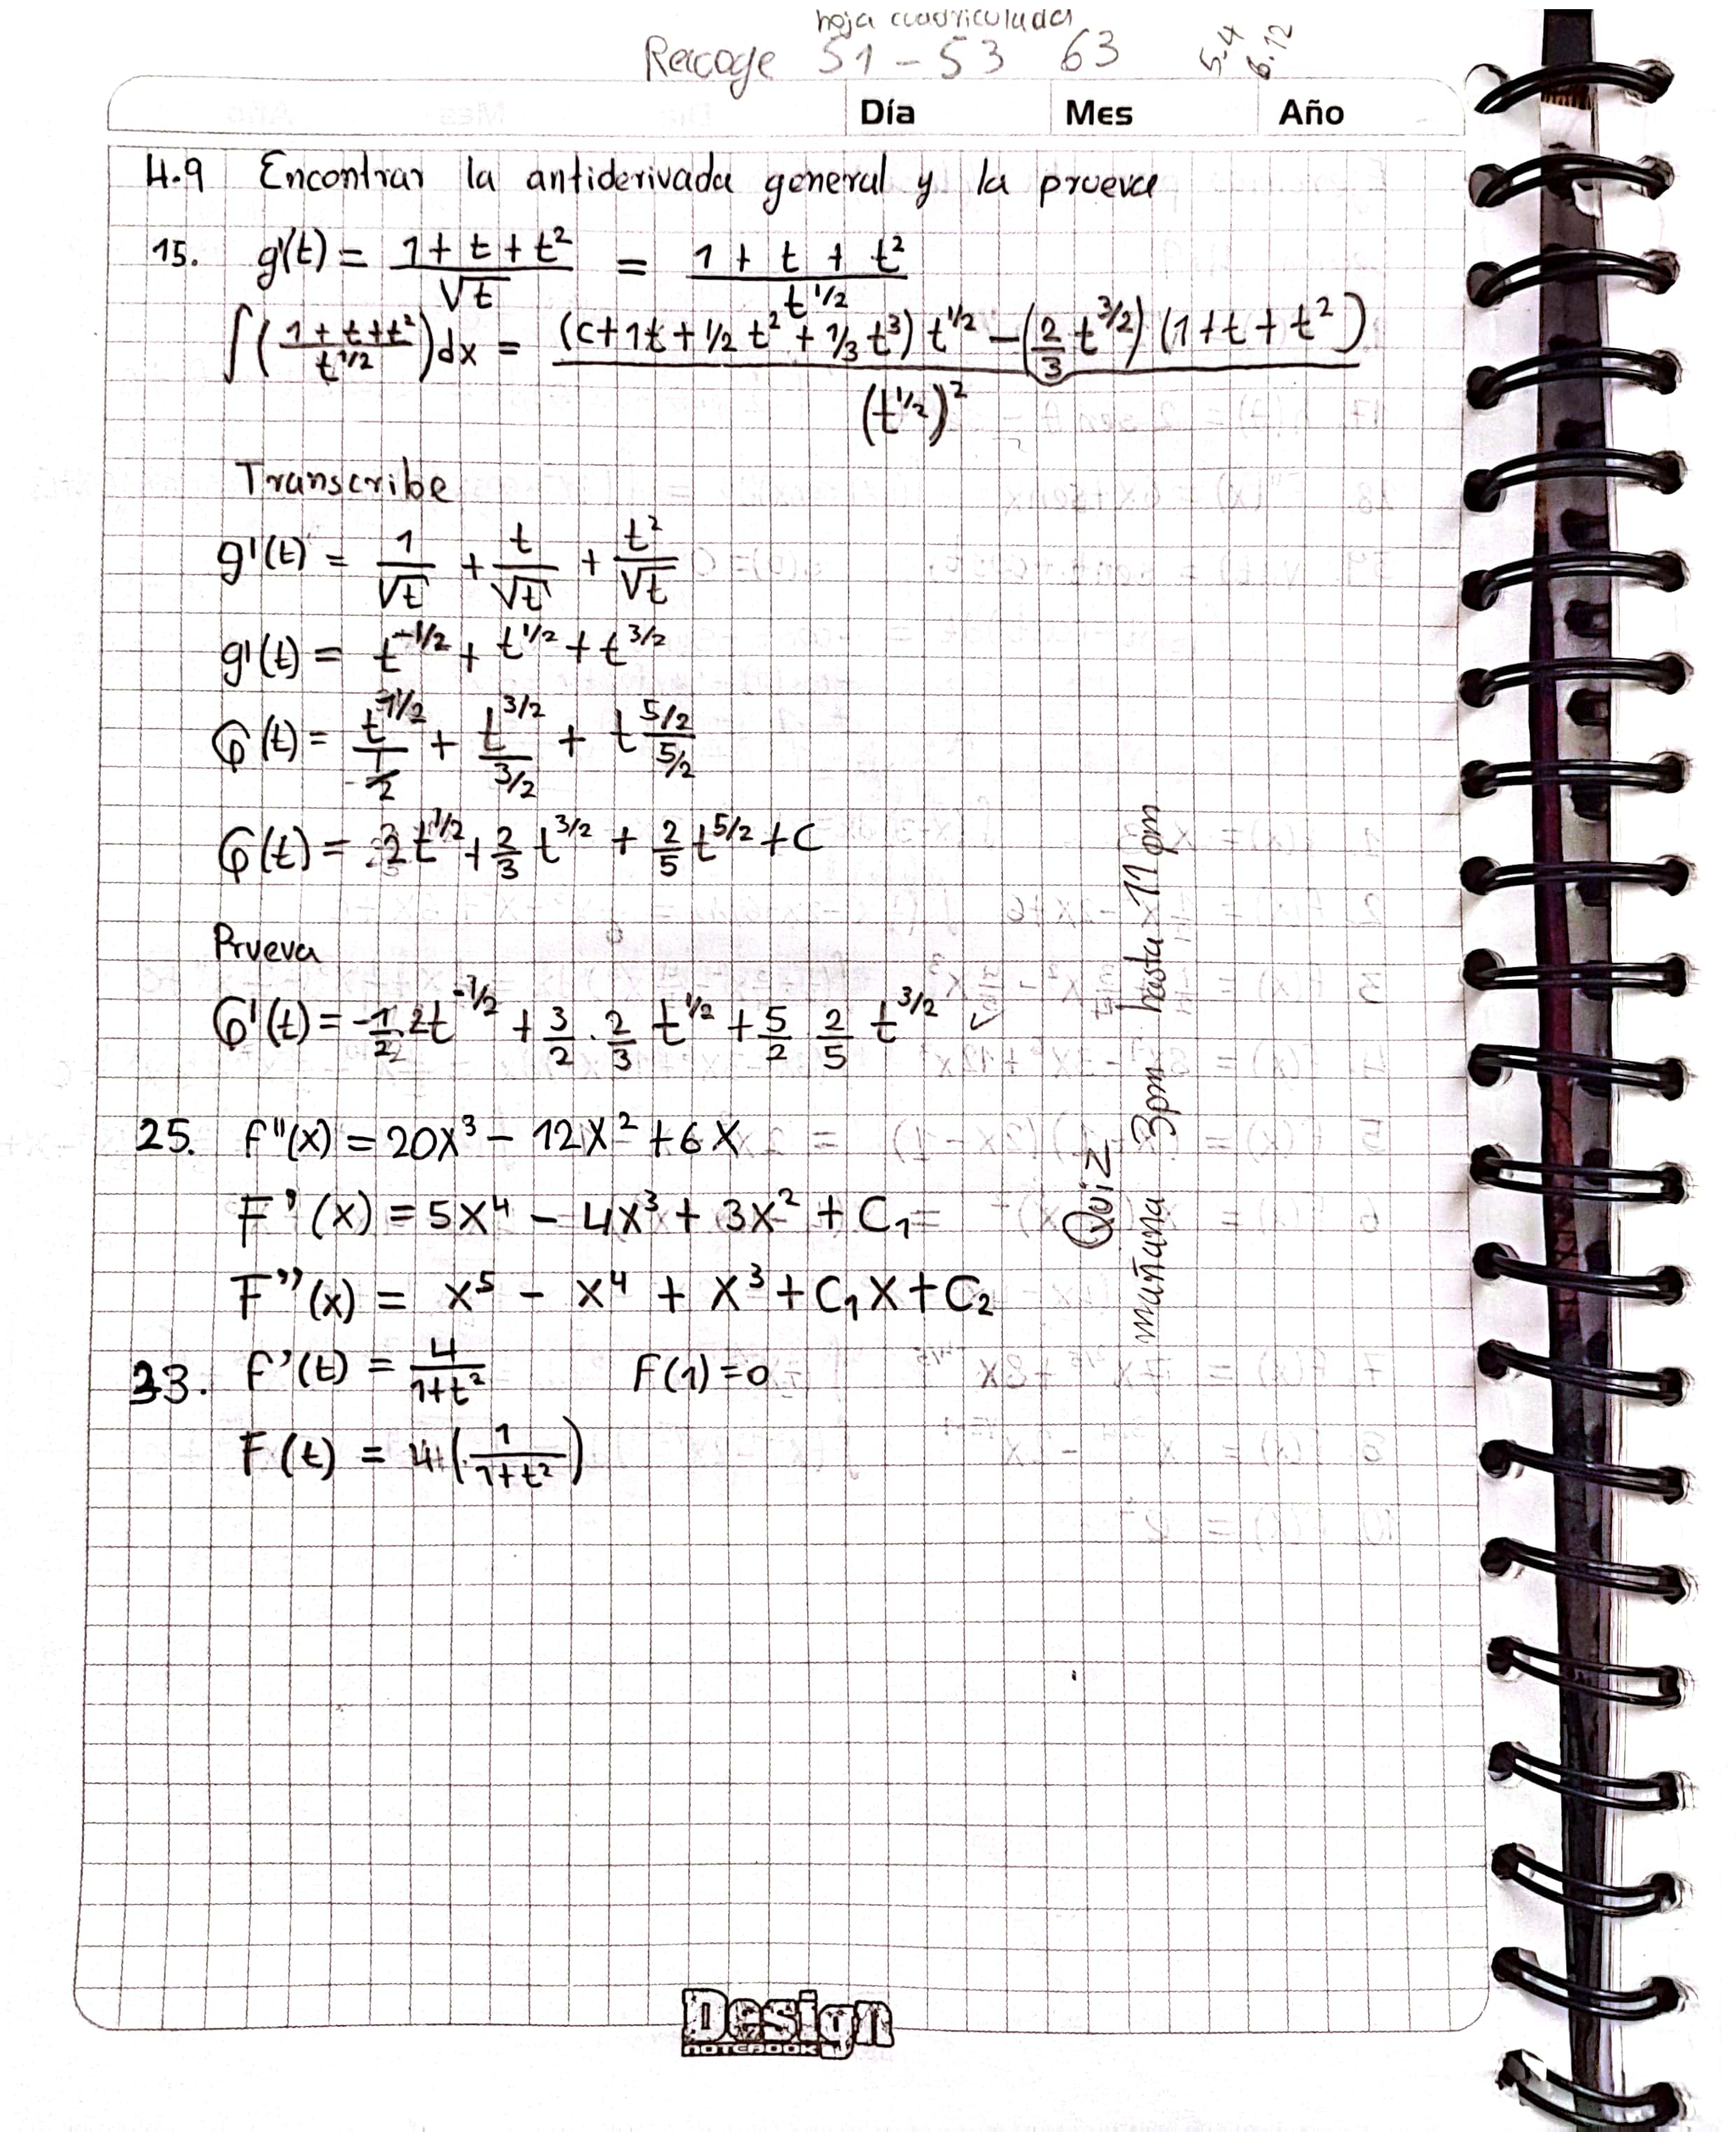 hoja cuadriculada
Recoge 51 - 53 63 5.4 6.12
Día Mes Año
4.9 Encontrar la antiderivada general y la prueva
15. g'(t) = (1 + t + t²)/√t = (1 + t + t²)/t^1/2
∫((1 + t + t²)/t^1/2)dx = ((c + 1t + 1/2 t² + 1/3 t³) t^1/2 - (2/3 t^3/2) (1 + t + t²))/(t^1/2)²
Transcribe
g'(t) = 1/√t + t/√t + t²/√t
g'(t) = t^-1/2 + t^1/2 + t^3/2
G(t) = t^1/2/(1/2) + t^3/2/(3/2) + t^5/2/(5/2)
G(t) = 2t^1/2 + 2/3 t^3/2 + 2/5 t^5/2 + C
Prueva
G'(t) = -1/2 · 2t^-1/2 + 3/2 · 2/3 t^1/2 + 5/2 2/5 t^3/2 ✓
25. F''(x) = 20x³ - 12x² + 6x
F'(x) = 5x⁴ - 4x³ + 3x² + C₁
F''(x) = x⁵ - x⁴ + x³ + C₁x + C₂
33. F'(t) = 4/(1+t²) F(1) = 0
F(t) = 4(1/(1+t²))
Quiz
mañana 3pm hasta 11 pm
Design
NOTEBOOK